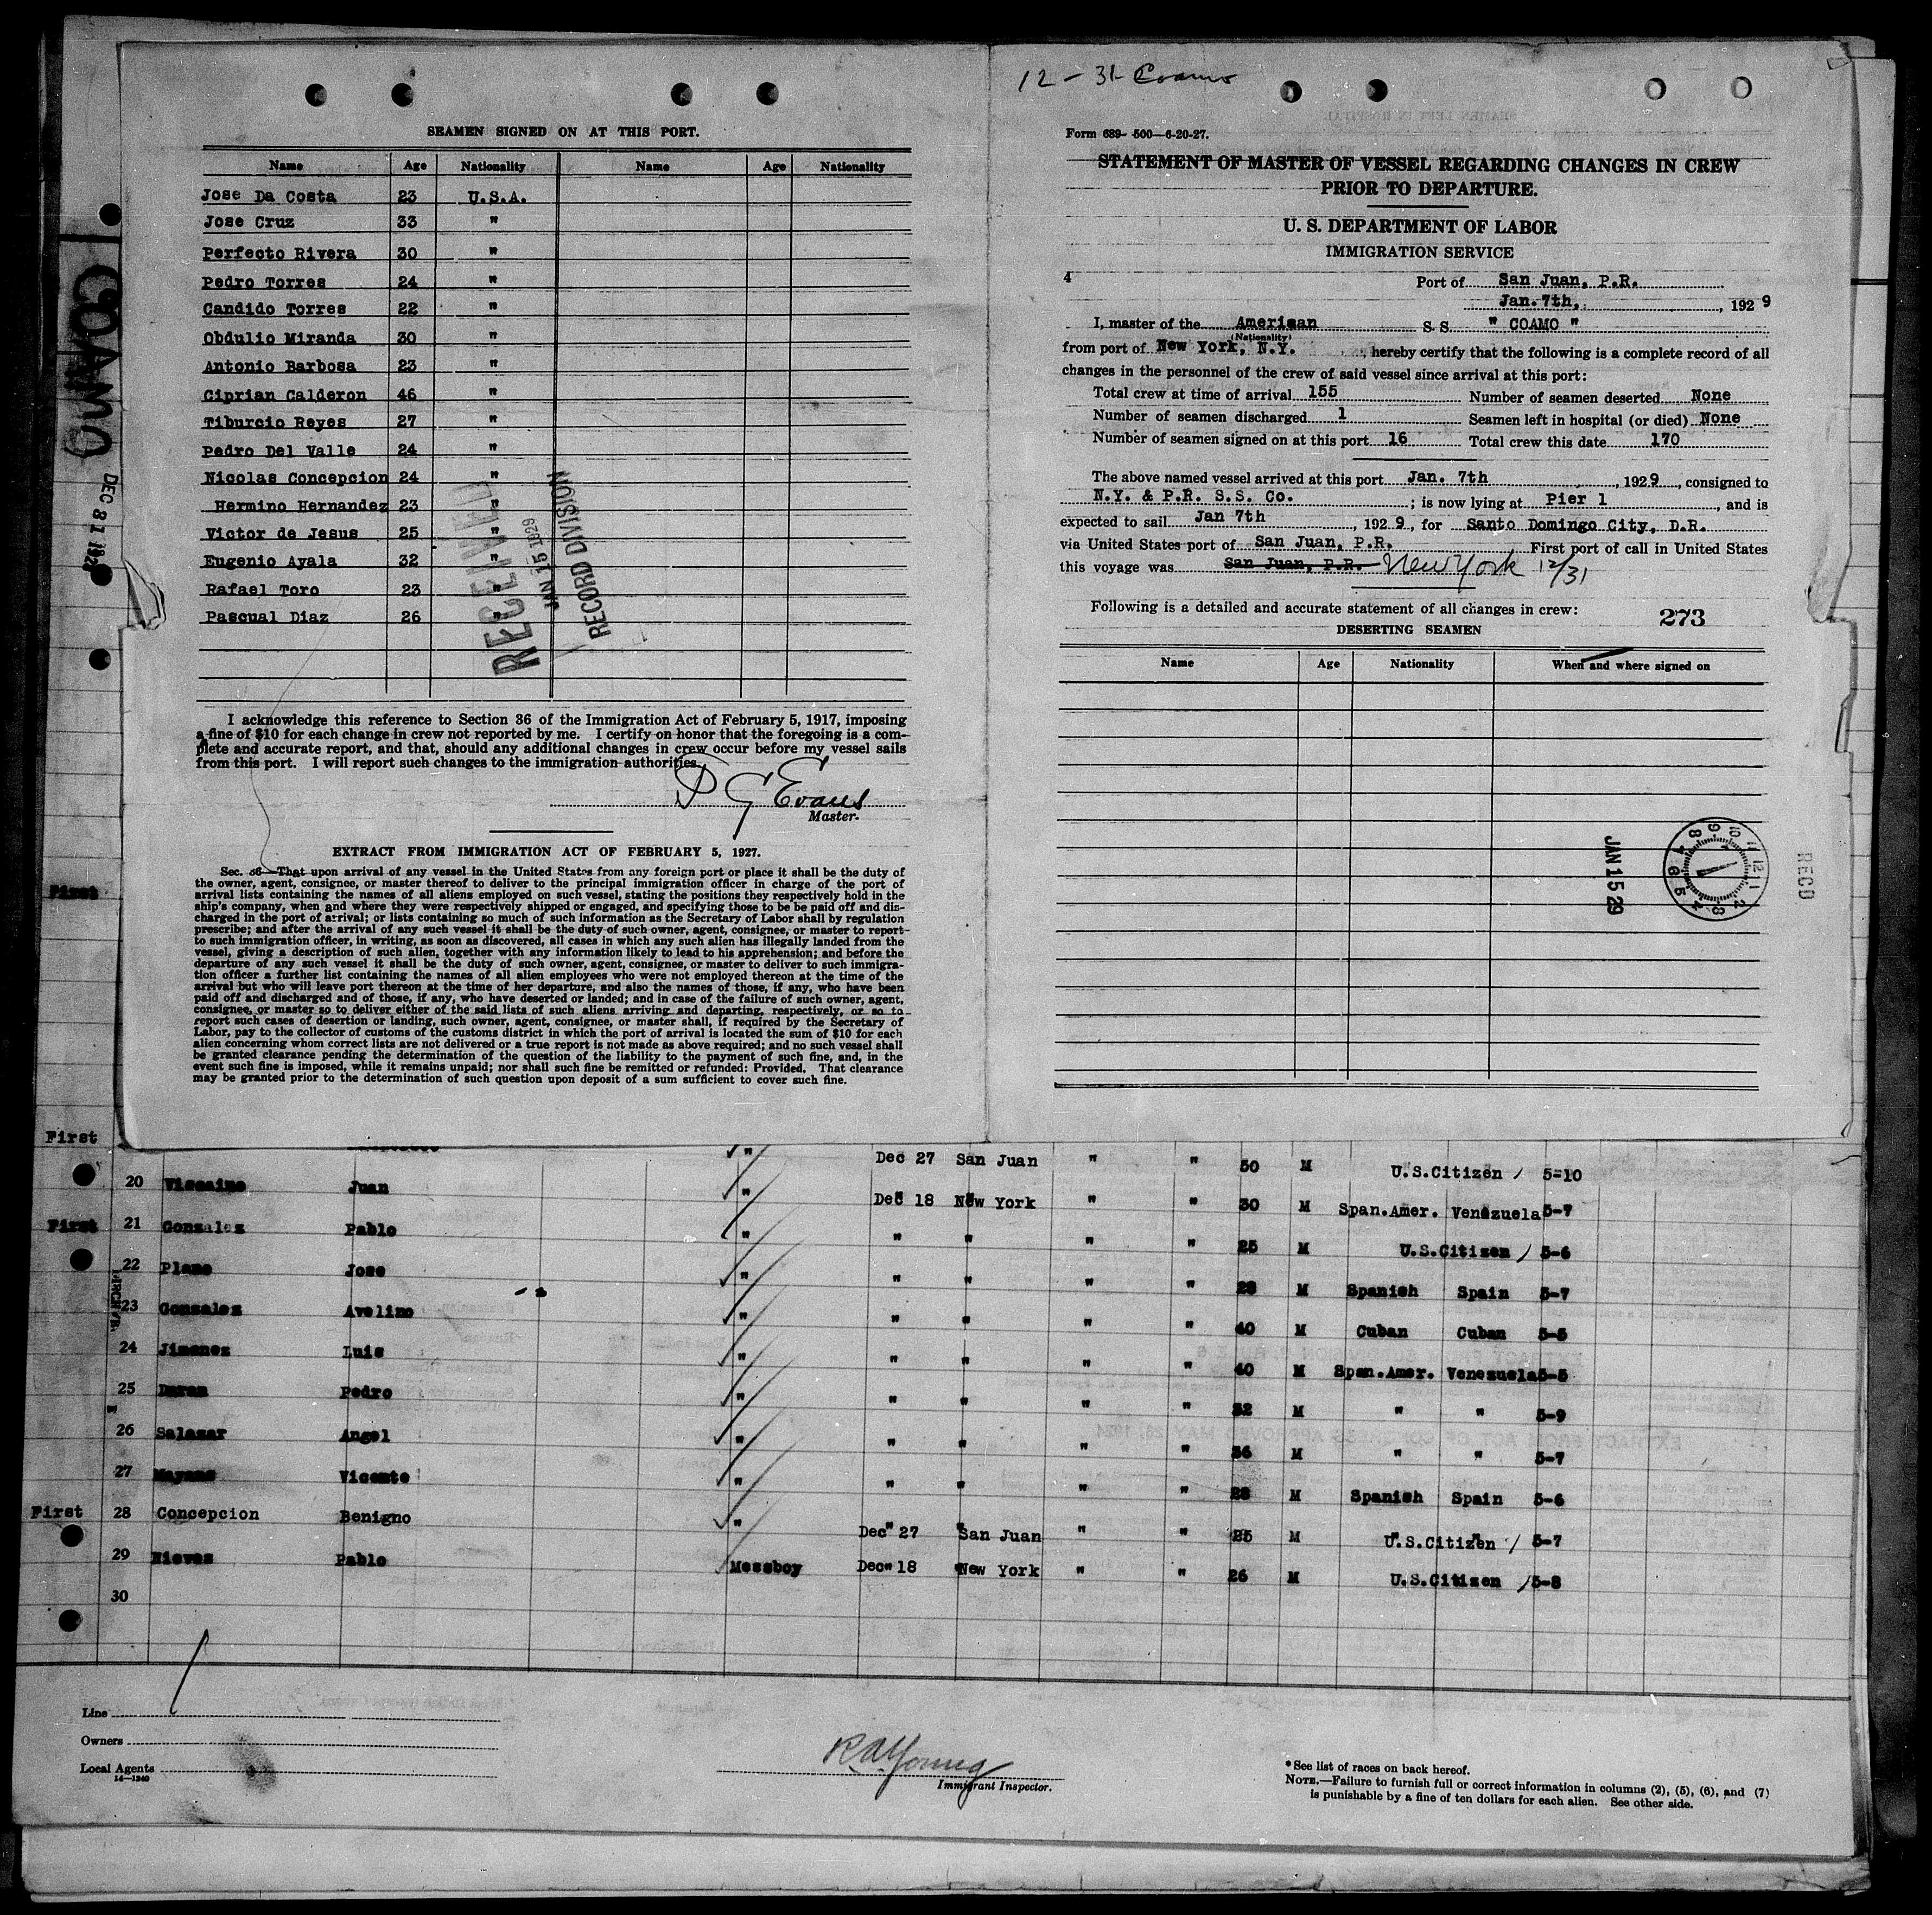 SEAMEN SIGNED ON AT THIS PORT.
Name Age Nationality Name Age Nationality
Jose Da Costa 23 U.S.A.
Jose Cruz 33 "
Perfecto Rivera 30 "
Pedro Torres 24 "
Candido Torres 22 "
Obdulio Miranda 30 "
Antonio Barbosa 23 "
Ciprian Calderon 46 "
Tiburcio Reyes 27 "
Pedro Del Valle 24 "
Nicolas Concepcion 24 "
Hermino Hernandez 23 "
Victor de Jesus 25 "
Eugenio Ayala 32 "
Rafael Toro 23 "
Pascual Diaz 26 "
RECEIVED
JAN 15 1929
RECORD DIVISION
I acknowledge this reference to Section 36 of the Immigration Act of February 5, 1917, imposing
a fine of $10 for each change in crew not reported by me. I certify on honor that the foregoing is a com-
plete and accurate report, and that, should any additional changes in crew occur before my vessel sails
from this port. I will report such changes to the immigration authorities.
Evans
Master.
EXTRACT FROM IMMIGRATION ACT OF FEBRUARY 5, 1927.
Sec. 36—That upon arrival of any vessel in the United States from any foreign port or place it shall be the duty of
the owner, agent, consignee, or master thereof to deliver to the principal immigration officer in charge of the port of
arrival lists containing the names of all aliens employed on such vessel, stating the positions they respectively hold in the
ship's company, when and where they were respectively shipped or engaged, and specifying those to be be paid off and dis-
charged in the port of arrival; or lists containing so much of such information as the Secretary of Labor shall by regulation
prescribe; and after the arrival of any such vessel it shall be the duty of such owner, agent, consignee, or master to report
to such immigration officer, in writing, as soon as discovered, all cases in which any such alien has illegally landed from the
vessel, giving a description of such alien, together with any information likely to lead to his apprehension; and before the
departure of any such vessel it shall be the duty of such owner, agent, consignee, or master to deliver to such immigra-
tion officer a further list containing the names of all alien employees who were not employed thereon at the time of the
arrival but who will leave port thereon at the time of her departure, and also the names of those, if any, who have been
paid off and discharged and of those, if any, who have deserted or landed; and in case of the failure of such owner, agent,
consignee, or master so to deliver either of the said lists of such aliens arriving and departing, respectively, or so to
report such cases of desertion or landing, such owner, agent, consignee, or master shall, if required by the Secretary of
Labor, pay to the collector of customs of the customs district in which the port of arrival is located the sum of $10 for each
alien concerning whom correct lists are not delivered or a true report is not made as above required; and no such vessel shall
be granted clearance pending the determination of the question of the liability to the payment of such fine, and, in the
event such fine is imposed, while it remains unpaid; nor shall such fine be remitted or refunded: Provided, That clearance
may be granted prior to the determination of such question upon deposit of a sum sufficient to cover such fine.
12 - 31 Coamo
Form 689- 500—6-20-27.
STATEMENT OF MASTER OF VESSEL REGARDING CHANGES IN CREW
PRIOR TO DEPARTURE.
U. S. DEPARTMENT OF LABOR
IMMIGRATION SERVICE
4
Port of San Juan, P.R.
Jan. 7th, , 192 9
I, master of the American S. S. " COAMO "
(Nationality)
from port of New York, N.Y. , hereby certify that the following is a complete record of all
changes in the personnel of the crew of said vessel since arrival at this port:
Total crew at time of arrival 155 Number of seamen deserted None
Number of seamen discharged 1 Seamen left in hospital (or died) None
Number of seamen signed on at this port 16 Total crew this date 170
The above named vessel arrived at this port Jan. 7th , 192 9 , consigned to
N.Y. & P.R. S.S. Co. ; is now lying at Pier 1 , and is
expected to sail Jan 7th , 192 9, for Santo Domingo City, D.R.
via United States port of San Juan, P.R. First port of call in United States
this voyage was San Juan, P.R. New York 12/31
Following is a detailed and accurate statement of all changes in crew: 273
DESERTING SEAMEN
Name Age Nationality When and where signed on
JAN 15 29
RECD
COAMO
DEC 31 192
First
First
" Dec 27 San Juan " " 50 M U.S.Citizen / 5-10
20 Viscaino Juan " Dec 18 New York " " 30 M Span.Amer. Venezuela 5-7
First 21 Gonzalez Pablo " " " " " 25 M U.S.Citizen / 5-6
22 Plano Jose " " " " " 28 M Spanish Spain 5-7
23 Gonsales Avelino " " " " " 40 M Cuban Cuban 5-5
24 Jimenez Luis " " " " " 40 M Span.Amer. Venezuela 5-5
25 Duran Pedro " " " " " 32 M " " 5-9
26 Salazar Angel " " " " " 36 M " " 5-7
27 Mayans Vicente " " " " " 28 M Spanish Spain 5-6
First 28 Concepcion Benigno " Dec 27 San Juan " " 25 M U.S.Citizen / 5-7
29 Nieves Pablo Messboy Dec 18 New York " " 26 M U.S.Citizen / 5-8
30
Line
Owners
Local Agents
14—1240
R A Young
Immigrant Inspector.
* See list of races on back hereof.
NOTE.—Failure to furnish full or correct information in columns (2), (5), (6), and (7)
is punishable by a fine of ten dollars for each alien. See other side.